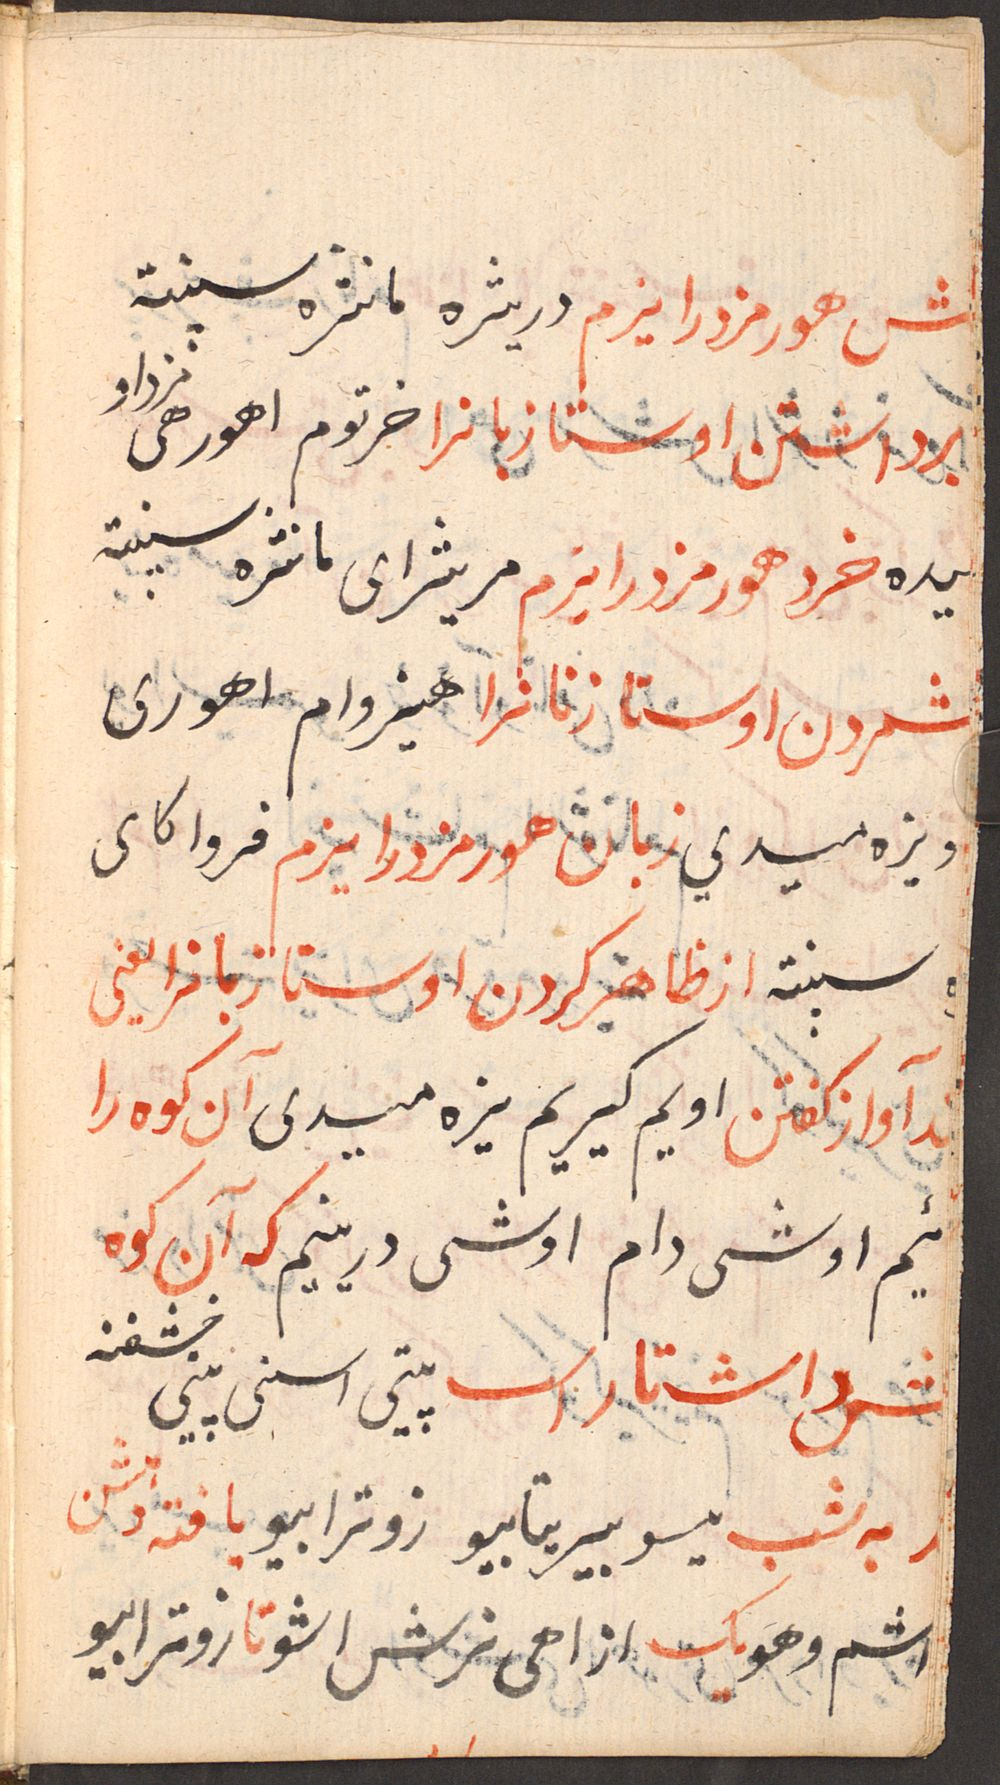 ش هورمزد را یزم دریثره مانثره سپنته
برداشتن اوستا زبانرا خرتوم اهورهی مزداو
یده خرد هورمزد را یزم مریثرای مانثره سپنته
شمردن اوستا زنانرا هیزوام اهوری
ویزه میدي زبان هورمزد را یزم فرواکای
ه سپنته از ظاهر کردن اوستا زبانرا یعنی
ند آواز گفتن اویم گیریم یزه میدی آن کوه را
ئیم اوشی دام اوشی درینیم که آن کوه
ش داشتار است پیتی اسنی پیتی خشفنه
ر به شب یسو بیریتابیو زوترابیو یافته دشن
اشم وهو یک از اهی نرش اشو تا زوترابیو